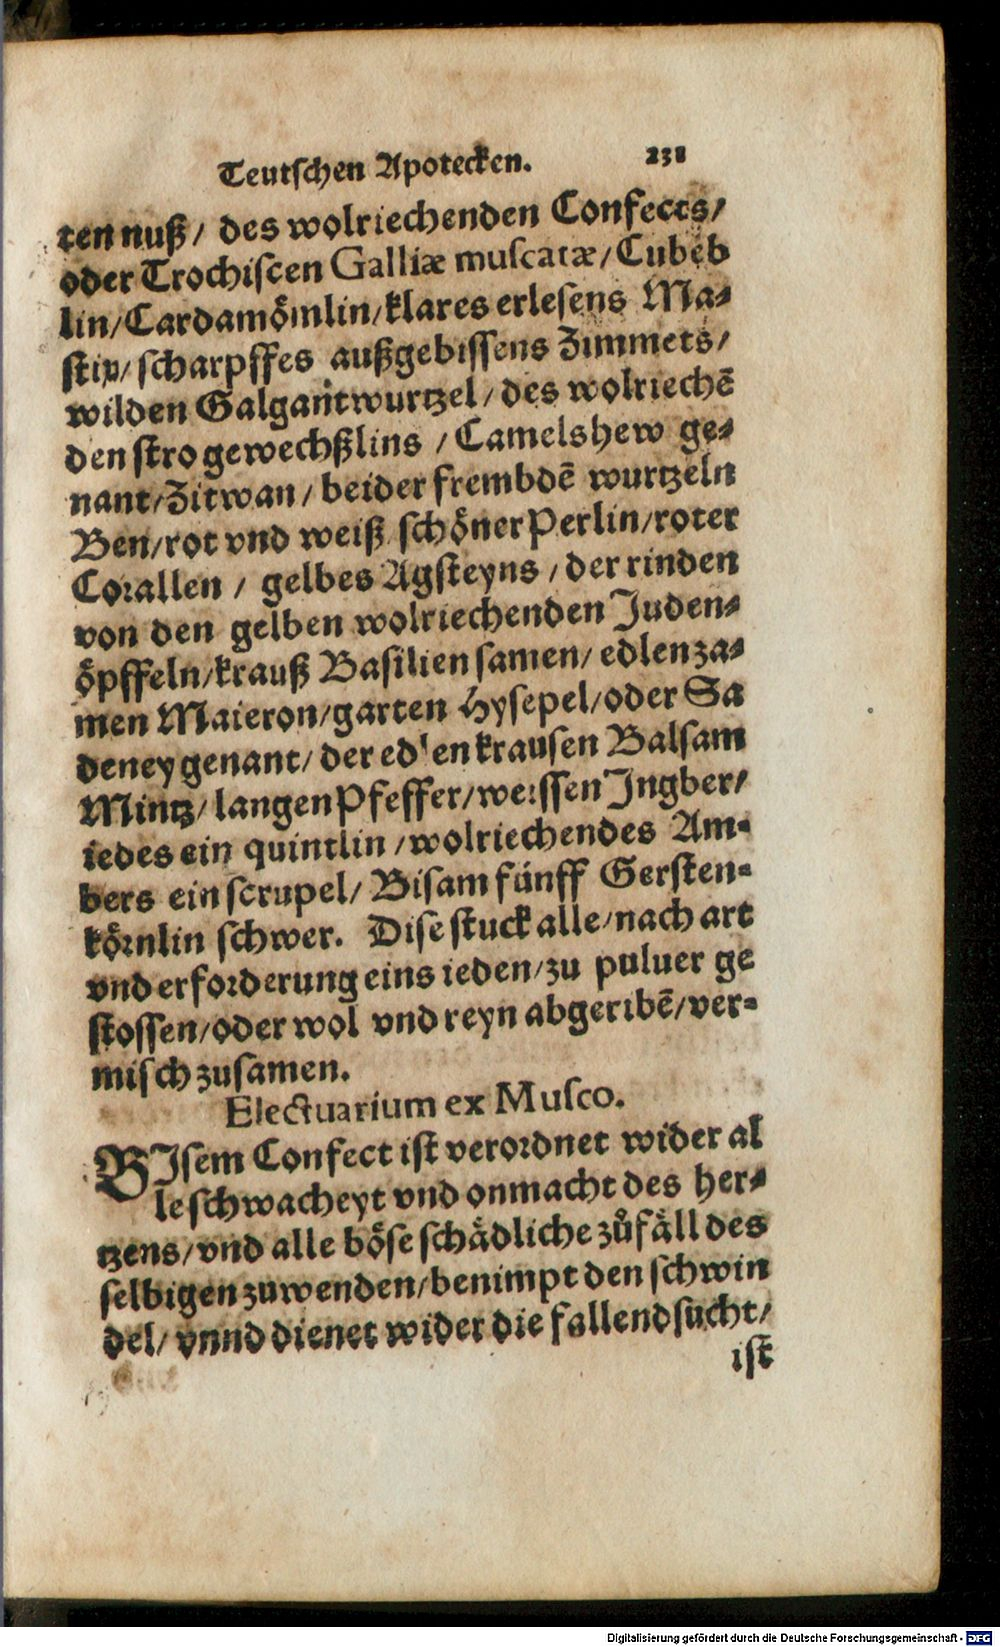 Teutschen Apotecken. 231
ten nuß/ des wolriechenden Confects/
oder Trochiscen Galliæ muscatæ/Cubeb
lin/Cardamömlin/klares erlesens Ma⸗
stix/scharpffes außgebissens Zimmets/
wilden Galgantwurtzel/des wolriechē
den stro gewechßlins /Camelshew ge⸗
nant/Zitwan/beider frembdē wurtzeln
Ben/rot vnd weiß schöner Perlin/roter
Corallen / gelbes Agsteyns /der rinden
von den gelben wolriechenden Juden⸗
öpffeln/krauß Basilien samen/ edlen za⸗
men Maieron/garten Hysepel/oder Sa
deney genant/der edlen krausen Balsam
Mintz/langen Pfeffer/weissen Jngber/
iedes ein quintlin /wolriechendes Am⸗
bers ein scrupel/ Bisam fünff Gersten⸗
körnlin schwer. Dise stuck alle/nach art
vnd erforderung eins ieden/zu puluer ge
stossen/oder wol vnd reyn abgeribē/ver⸗
misch zusamen.
Electuarium ex Musco.
BJsem Confect ist verordnet wider al
le schwacheyt vnd onmacht des her⸗
tzens/vnd alle böse schädliche zůfäll des
selbigen zuwenden/benimpt den schwin
del/ vnnd dienet wider die fallendsucht/
ist
Digitalisierung gefördert durch die Deutsche Forschungsgemeinschaft - DFG